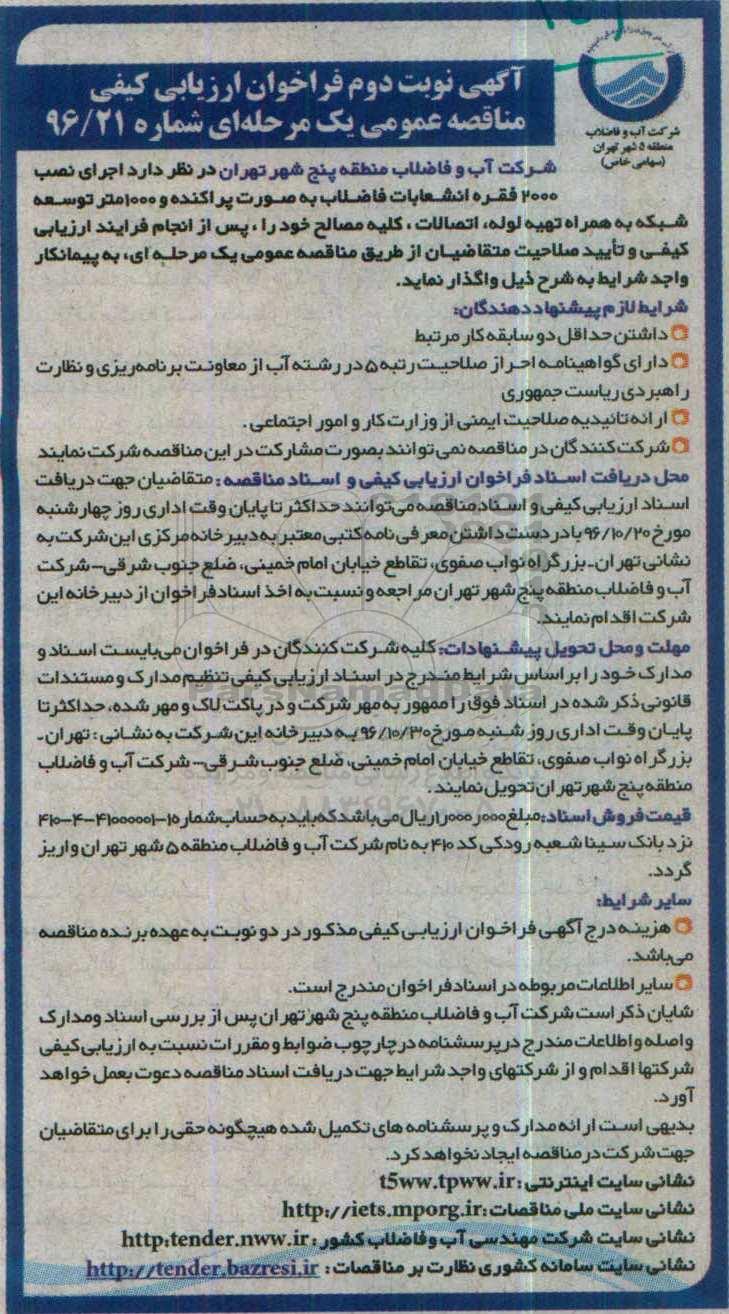 شرکت آب و فاضلاب
منطقه ۵ شهر تهران
(سهامی خاص)
آگهی نوبت دوم فراخوان ارزیابی کیفی
مناقصه عمومی یک مرحله‌ای شماره ۹۶/۲۱
شرکت آب و فاضلاب منطقه پنج شهر تهران در نظر دارد اجرای نصب
۲۰۰۰ فقره انشعابات فاضلاب به صورت پراکنده و ۱۰۰۰متر توسعه
شبکه به همراه تهیه لوله، اتصالات ، کلیه مصالح خود را ، پس از انجام فرایند ارزیابی
کیفی و تأیید صلاحیت متقاضیان از طریق مناقصه عمومی یک مرحله ای، به پیمانکار
واجد شرایط به شرح ذیل واگذار نماید.
شرایط لازم پیشنهاددهندگان:
داشتن حداقل دو سابقه کار مرتبط
دارای گواهینامه احراز صلاحیت رتبه ۵ در رشته آب از معاونت برنامه‌ریزی و نظارت
راهبردی ریاست جمهوری
ارائه تائیدیه صلاحیت ایمنی از وزارت کار و امور اجتماعی .
شرکت کنندگان در مناقصه نمی توانند بصورت مشارکت در این مناقصه شرکت نمایند
محل دریافت اسناد فراخوان ارزیابی کیفی و اسناد مناقصه : متقاضیان جهت دریافت
اسناد ارزیابی کیفی و اسناد مناقصه می‌توانند حداکثر تا پایان وقت اداری روز چهارشنبه
مورخ ۹۶/۱۰/۲۰ با در دست داشتن معرفی نامه کتبی معتبر به دبیرخانه مرکزی این شرکت به
نشانی تهران- بزرگراه نواب صفوی، تقاطع خیابان امام خمینی، ضلع جنوب شرقی- شرکت
آب و فاضلاب منطقه پنج شهر تهران مراجعه و نسبت به اخذ اسناد فراخوان از دبیرخانه این
شرکت اقدام نمایند.
مهلت و محل تحویل پیشنهادات: کلیه شرکت کنندگان در فراخوان می‌بایست اسناد و
مدارک خود را بر اساس شرایط مندرج در اسناد ارزیابی کیفی تنظیم مدارک و مستندات
قانونی ذکر شده در اسناد فوق را ممهور به مهر شرکت و در پاکت لاک و مهر شده، حداکثر تا
پایان وقت اداری روز شنبه مورخ ۹۶/۱۰/۳۰ به دبیرخانه این شرکت به نشانی : تهران-
بزرگراه نواب صفوی، تقاطع خیابان امام خمینی، ضلع جنوب شرقی- شرکت آب و فاضلاب
منطقه پنج شهر تهران تحویل نمایند .
قیمت فروش اسناد: مبلغ ۱٫۰۰۰٫۰۰۰ریال می‌باشد که باید به حساب شماره ۱-۴۱۰۰۰۰۰۱-۴-۴۱۰
نزد بانک سینا شعبه رودکی کد ۴۱۰ به نام شرکت آب و فاضلاب منطقه ۵ شهر تهران واریز
گردد.
سایر شرایط:
هزینه درج آگهی فراخوان ارزیابی کیفی مذکور در دو نوبت به عهده برنده مناقصه
می‌باشد.
سایر اطلاعات مربوطه در اسناد فراخوان مندرج است.
شایان ذکر است شرکت آب و فاضلاب منطقه پنج شهر تهران پس از بررسی اسناد و مدارک
واصله و اطلاعات مندرج در پرسشنامه در چارچوب ضوابط و مقررات نسبت به ارزیابی کیفی
شرکتها اقدام و از شرکتهای واجد شرایط جهت دریافت اسناد مناقصه دعوت بعمل خواهد
آورد.
بدیهی است ارائه مدارک و پرسشنامه های تکمیل شده هیچگونه حقی را برای متقاضیان
جهت شرکت در مناقصه ایجاد نخواهد کرد.
نشانی سایت اینترنتی : t5ww.tpww.ir
نشانی سایت ملی مناقصات : http://iets.mporg.ir
نشانی سایت شرکت مهندسی آب و فاضلاب کشور : http:tender.nww.ir
نشانی سایت سامانه کشوری نظارت بر مناقصات : http://tender.bazresi.ir